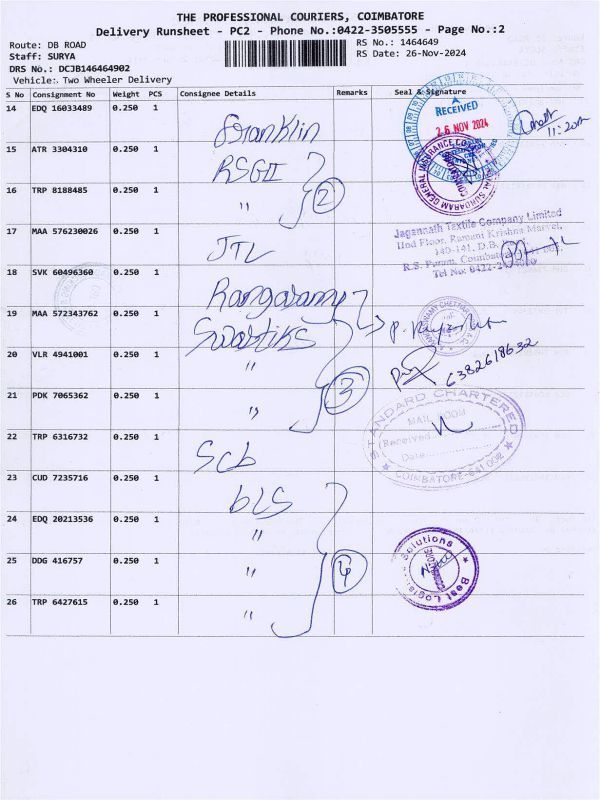 THE PROFESSIONAL COURIERS, COIMBATORE
Delivery Runsheet - PC2 - Phone No.:0422-3505555 - Page No.:2
Route: DB ROAD
RS No.: 1464649
Staff: SURYA
RS Date: 26-Nov-2024
DRS No.: DCJB146464902
Vehicle: Two Wheeler Delivery
S No Consignment No Weight PCS Consignee Details Remarks Seal & Signature
14 EDQ 16033489 0.250 1 Franklin
RECEIVED
26 NOV 2024
11:20am
15 ATR 3304310 0.250 1 RSGI
16 TRP 8188485 0.250 1 " 2
SUNDARAM GENERAL INSURANCE
17 MAA 576230026 0.250 1 JTL
Jagannath Textile Company Limited
IInd Floor, Ramani Krishna Marvel,
140-141, D.B.
R.S. Puram, Coimbatore
Tel No: 0422-2
18 SVK 60496360 0.250 1 Rangasamy
19 MAA 572343762 0.250 1 Swastiks
20 VLR 4941001 0.250 1 "
6382618632
21 PDK 7065362 0.250 1 " 3
STANDARD CHARTERED
MAIL ROOM
Received
Date
COIMBATORE-641 002
22 TRP 6316732 0.250 1 Scb
23 CUD 7235716 0.250 1 bLS
24 EDQ 20213536 0.250 1 "
25 DDG 416757 0.250 1 " 4
Best Logistics Solutions
26 TRP 6427615 0.250 1 "